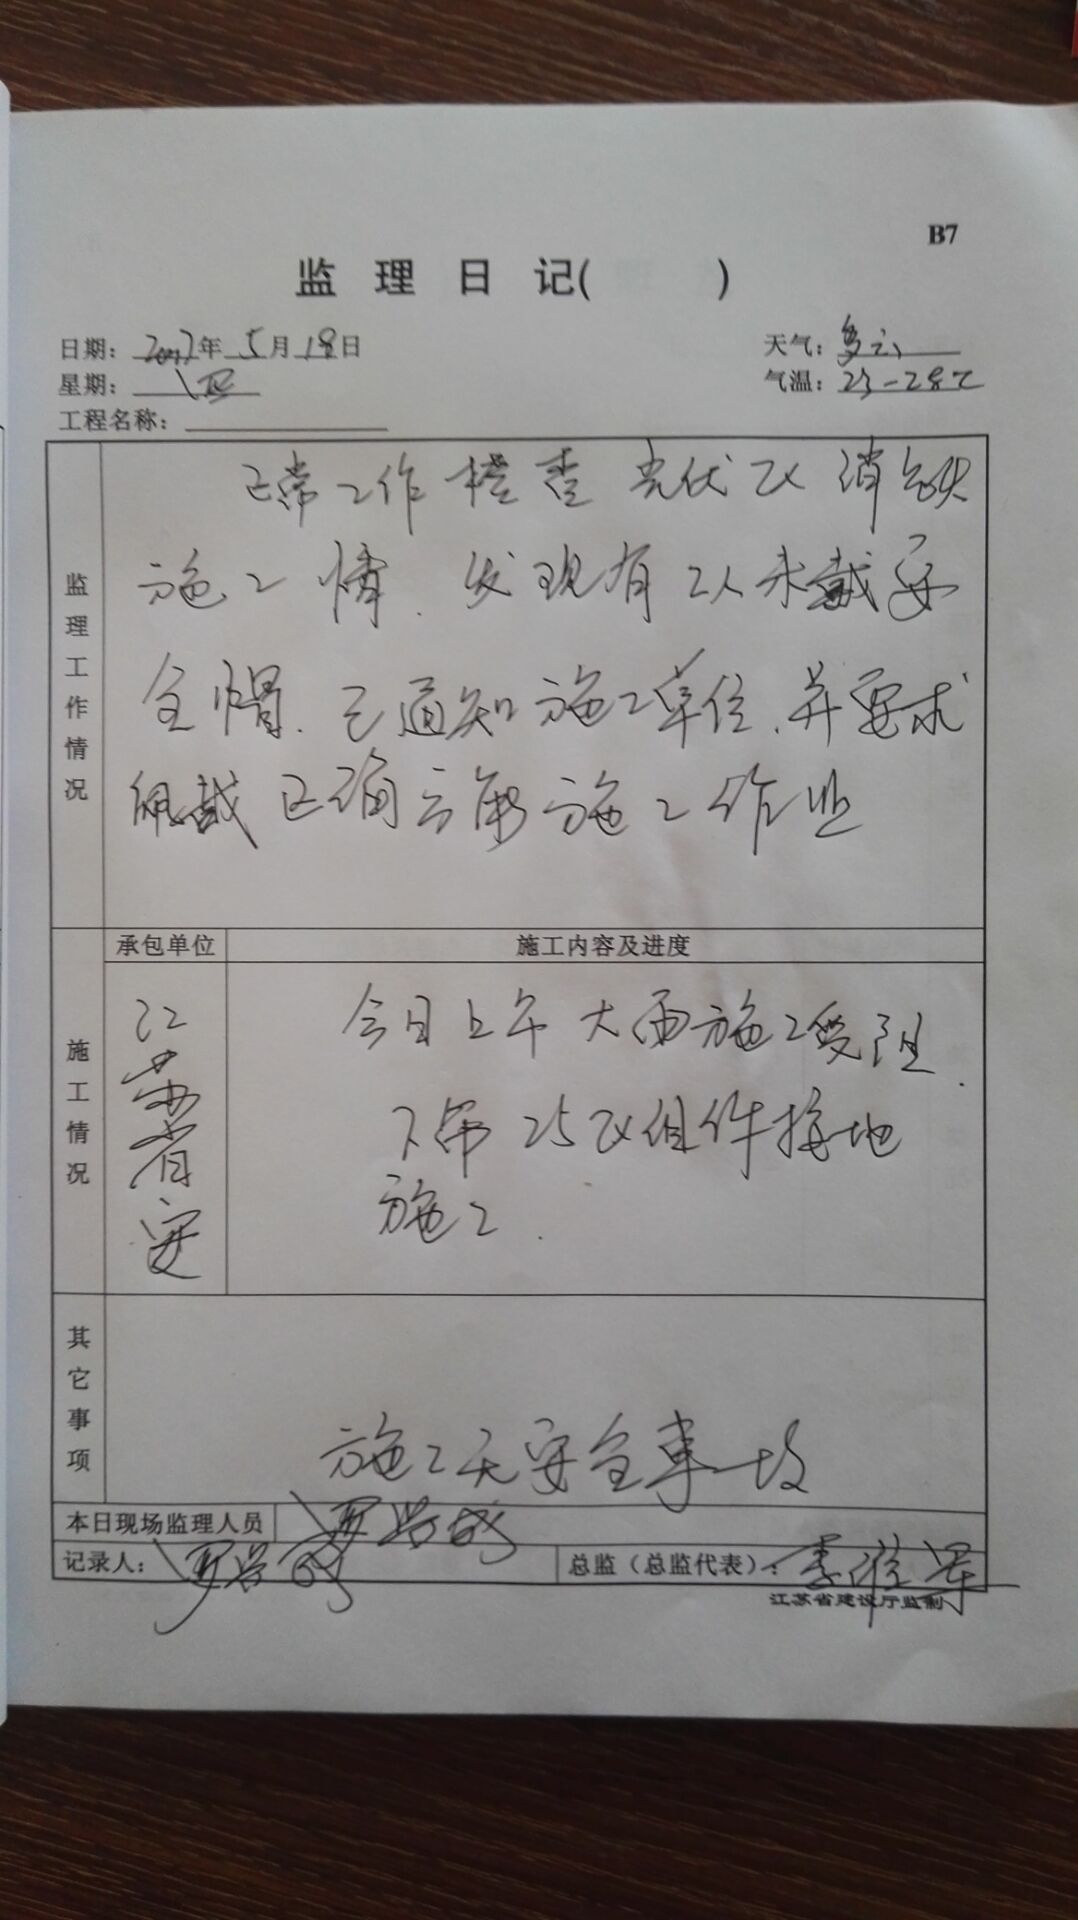 B7
监 理 日 记( )
日期: 2017年 5月 18日
天气: 多云
星期: 四
气温: 23-28℃
工程名称:
监理工作情况
正常工作 检查 光伏区 消缺
施工情. 发现有工人未戴安
全帽. 已通知施工单位. 并要求
佩戴正确 施工作业
承包单位
施工内容及进度
施工情况
江苏省安
今日上午大雨施工受阻.
下午 25区组件接地
施工.
其它事项
施工无安全事故
本日现场监理人员
记录人:
总监（总监代表）:
江苏省建设厅监制